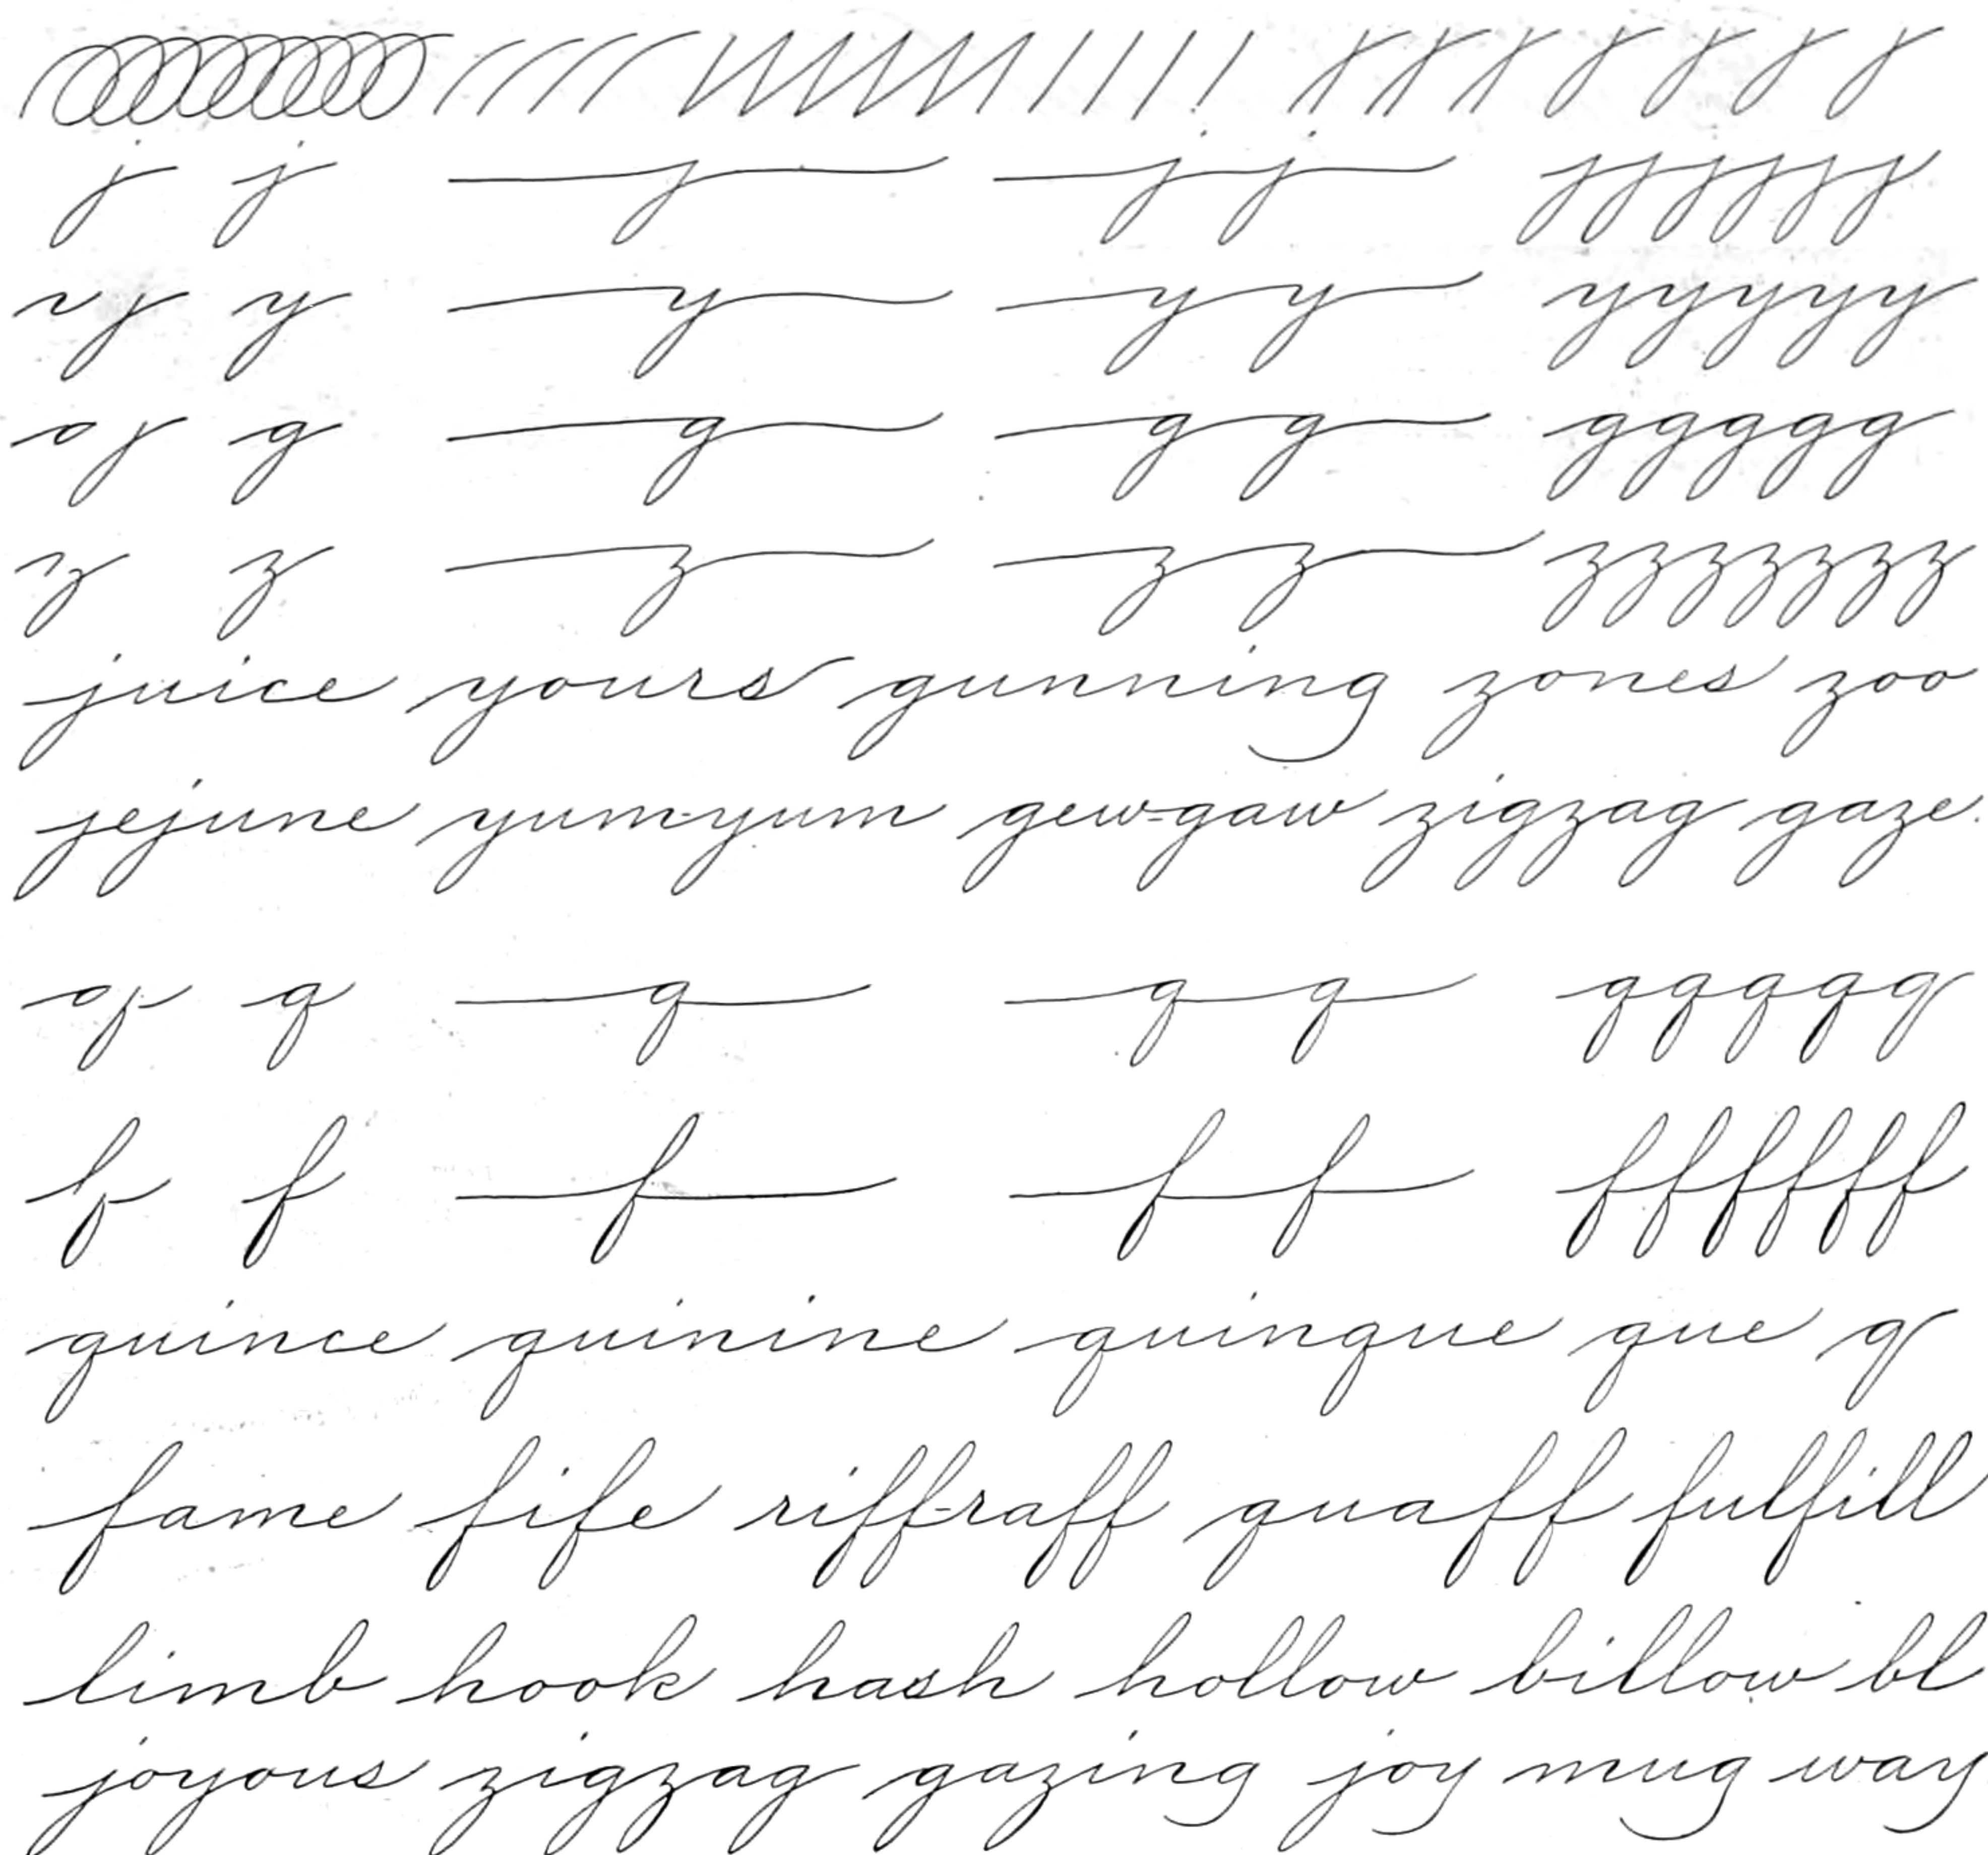 j j j j j j j j j j j
y y y y y y y y y y
g g g g g g g g g g
z z z z z z z z z z z
juice yours gunning zones zoo
jejune yum-yum gew-gaw zigzag gaze.
q q q q q q q q q q
f f f f f f f f f f f
quince quinine quinque que q
fame fife riff-raff quaff fulfill
limb hook hash hollow billow bl
joyous zigzag gazing joy mug way